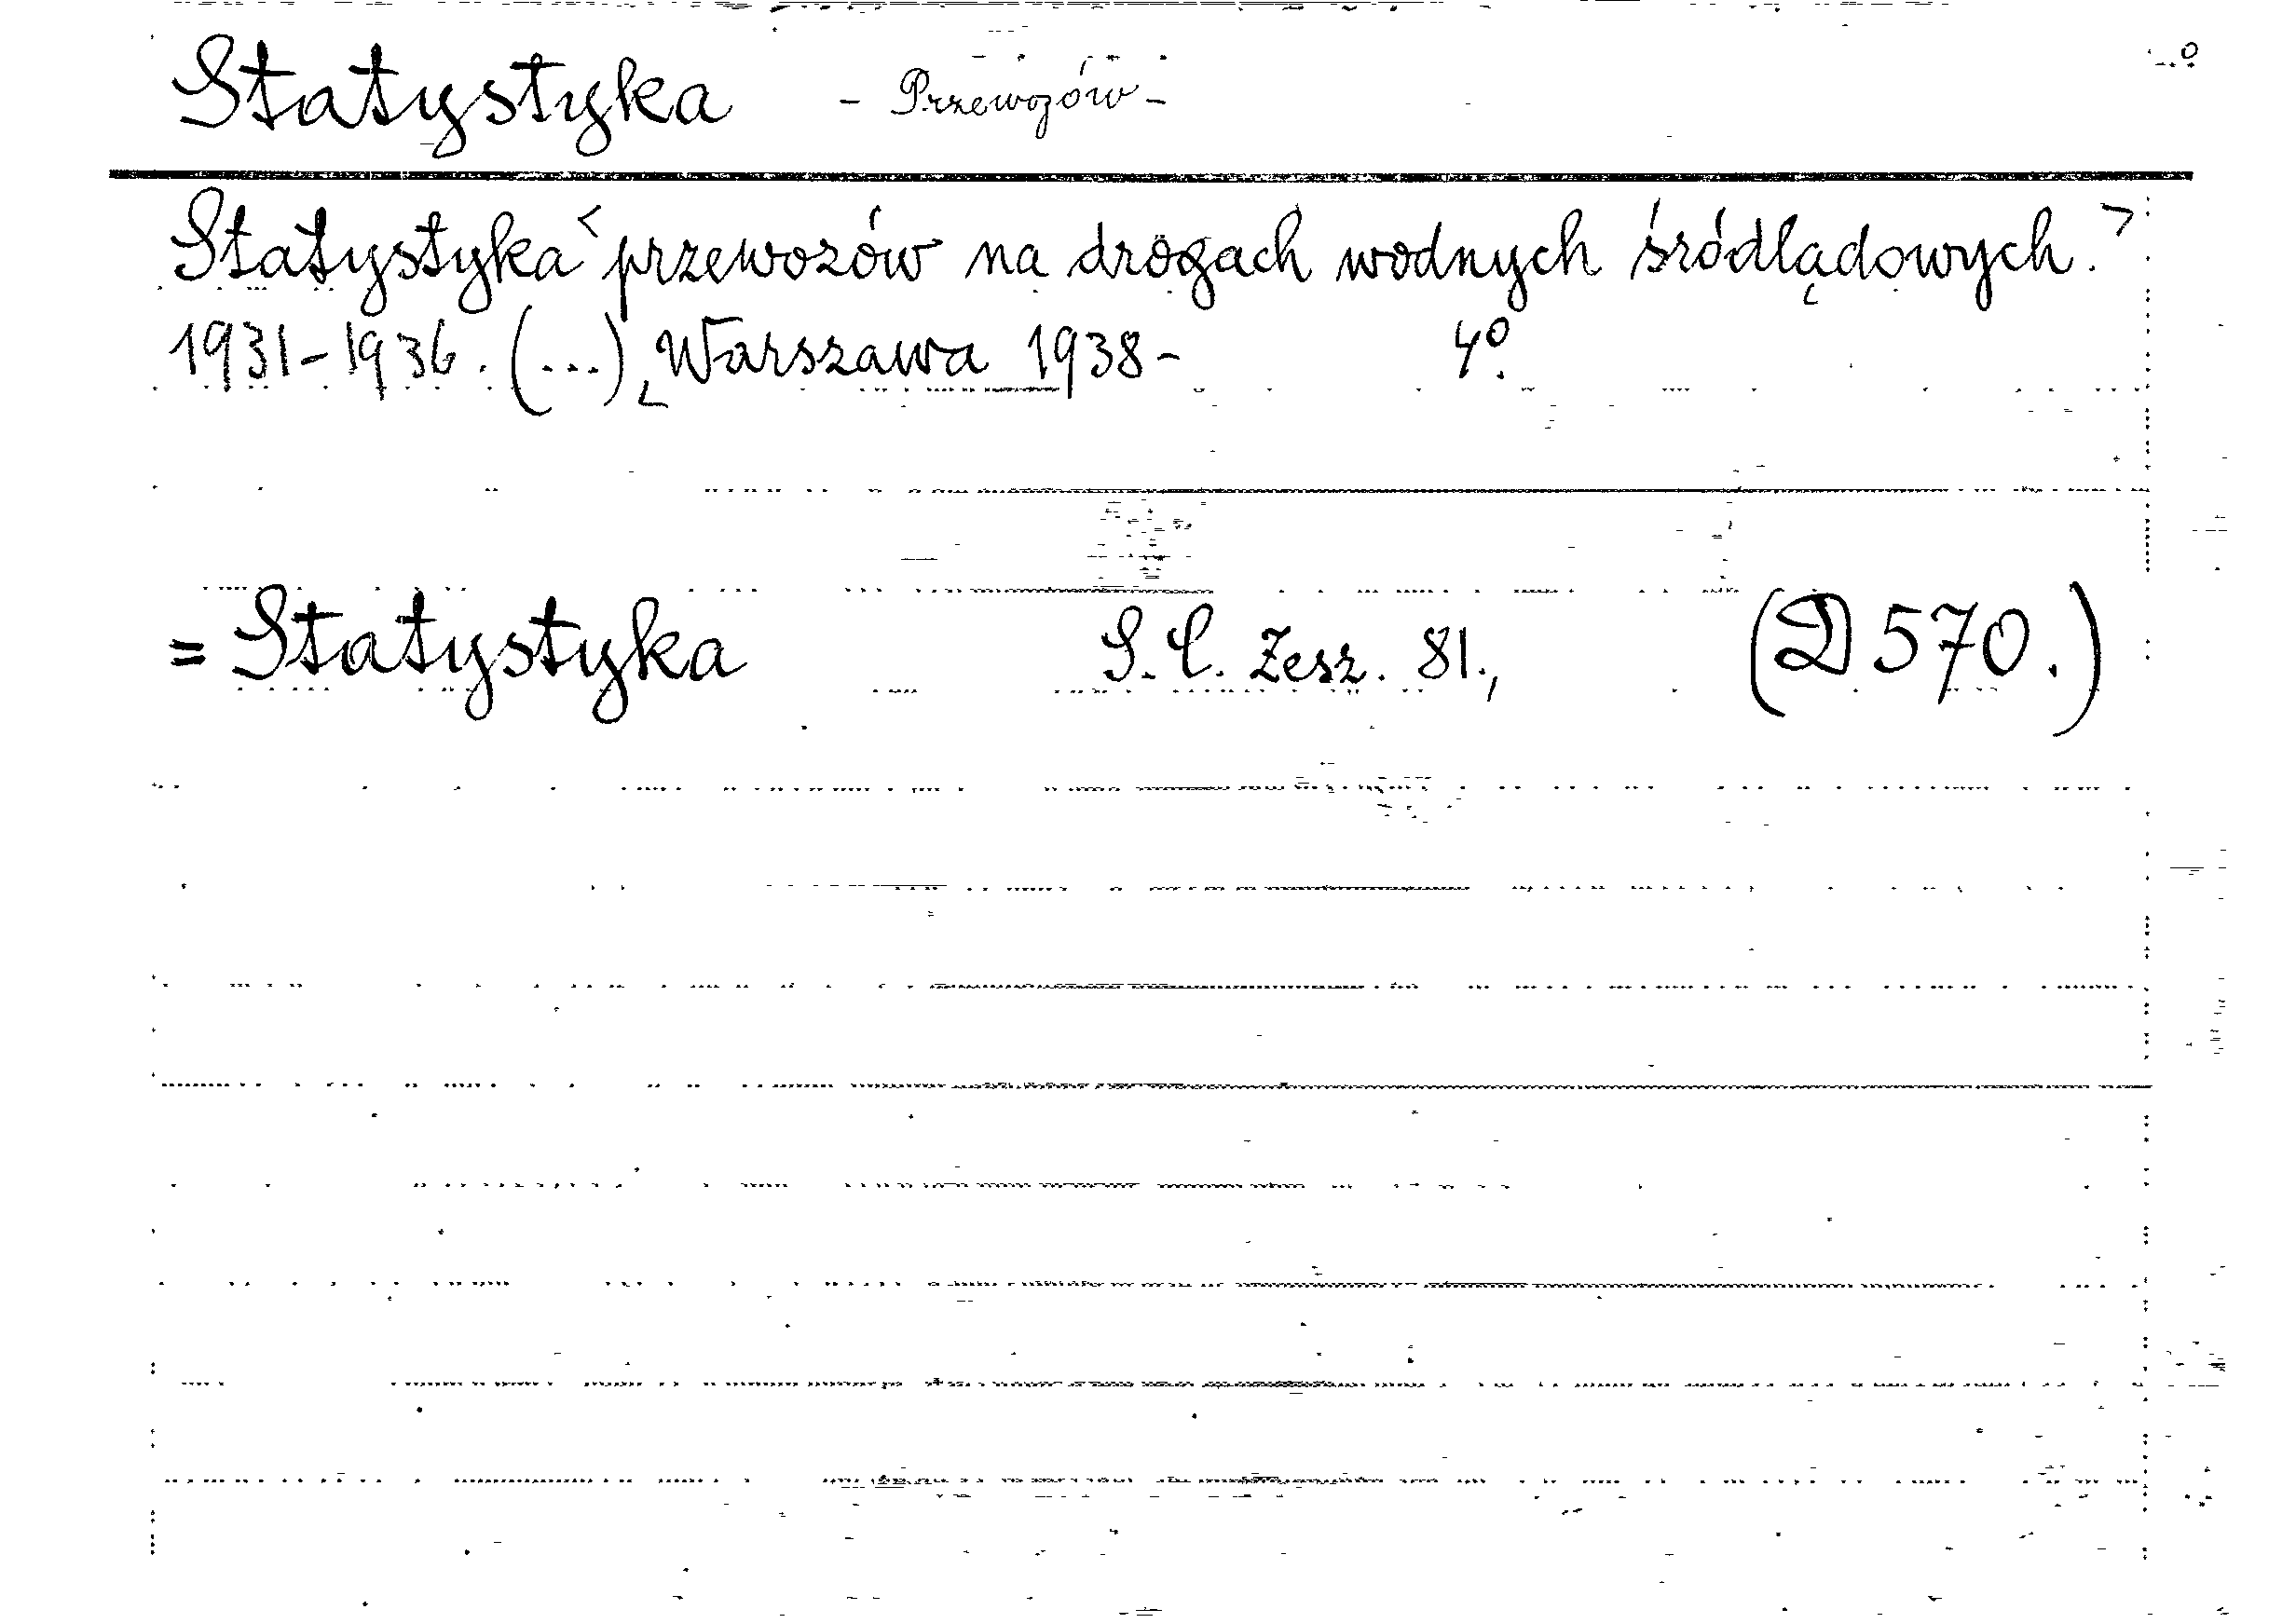 Statystyka - Przewozów -
Statystyka <przewozów na drogach wodnych śródlądowych.>
1931-1936. (...) Warszawa 1938- 4º.
= Statystyka S.C. Zesz. 81., (D 570.)